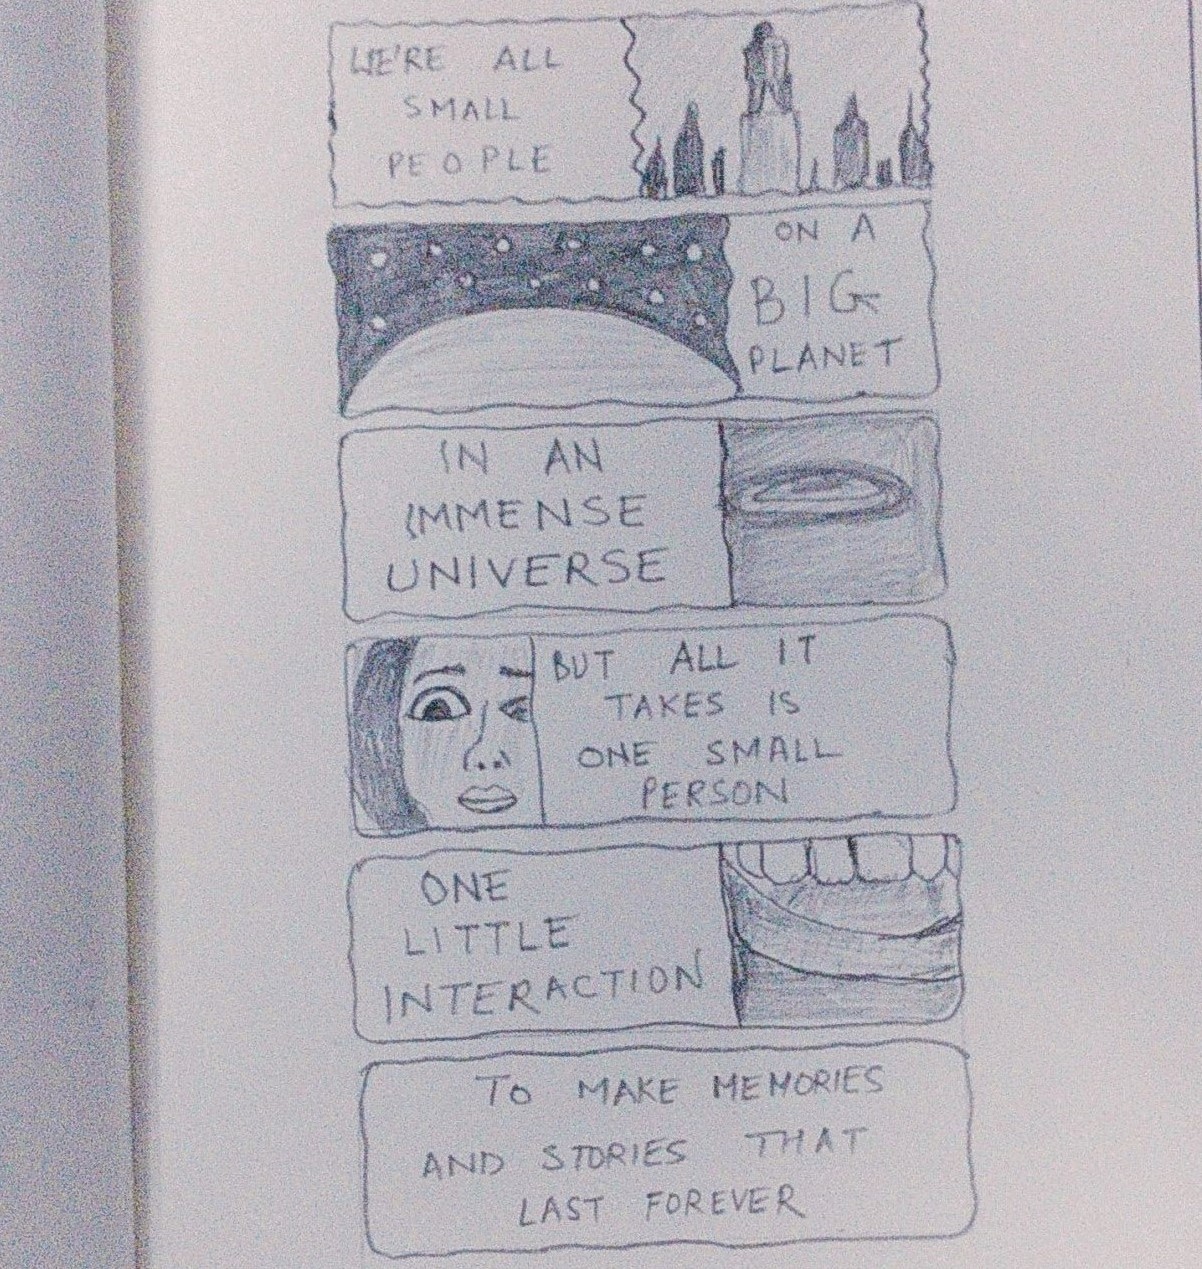 WE'RE ALL
SMALL
PEOPLE
ON A
BIG
PLANET
IN AN
IMMENSE
UNIVERSE
BUT ALL IT
TAKES IS
ONE SMALL
PERSON
ONE
LITTLE
INTERACTION
TO MAKE MEMORIES
AND STORIES THAT
LAST FOREVER